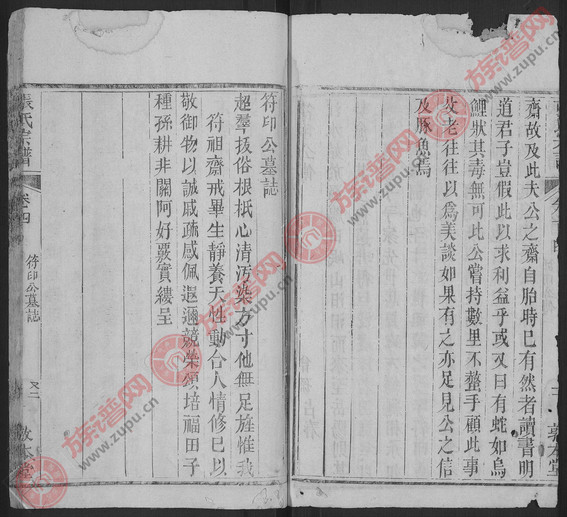 齋故及此夫公之齋自胎時已有然者讀書明
道君子豈假此以求利益乎或又曰有蛇如烏
鯉狀其毒無可此公嘗持數里不螫手顧此事
父老往往以為美談如果有之亦足見公之信
及豚魚焉
敦本堂
符印公墓誌
超羣拔俗根柢心清污染方寸他無足旌惟我
符祖齋戒畢生靜養天性動合人情修己以
敬御物以誠戚疏咸佩遐邇競榮須培福田子
種孫耕非關阿好覈實縷呈
張氏宗譜
卷四
符印公墓誌
又二
敦本堂
族谱网
www.zupu.cn
族谱网
www.zupu.cn
族谱网
www.zupu.cn
族谱网
www.zupu.cn